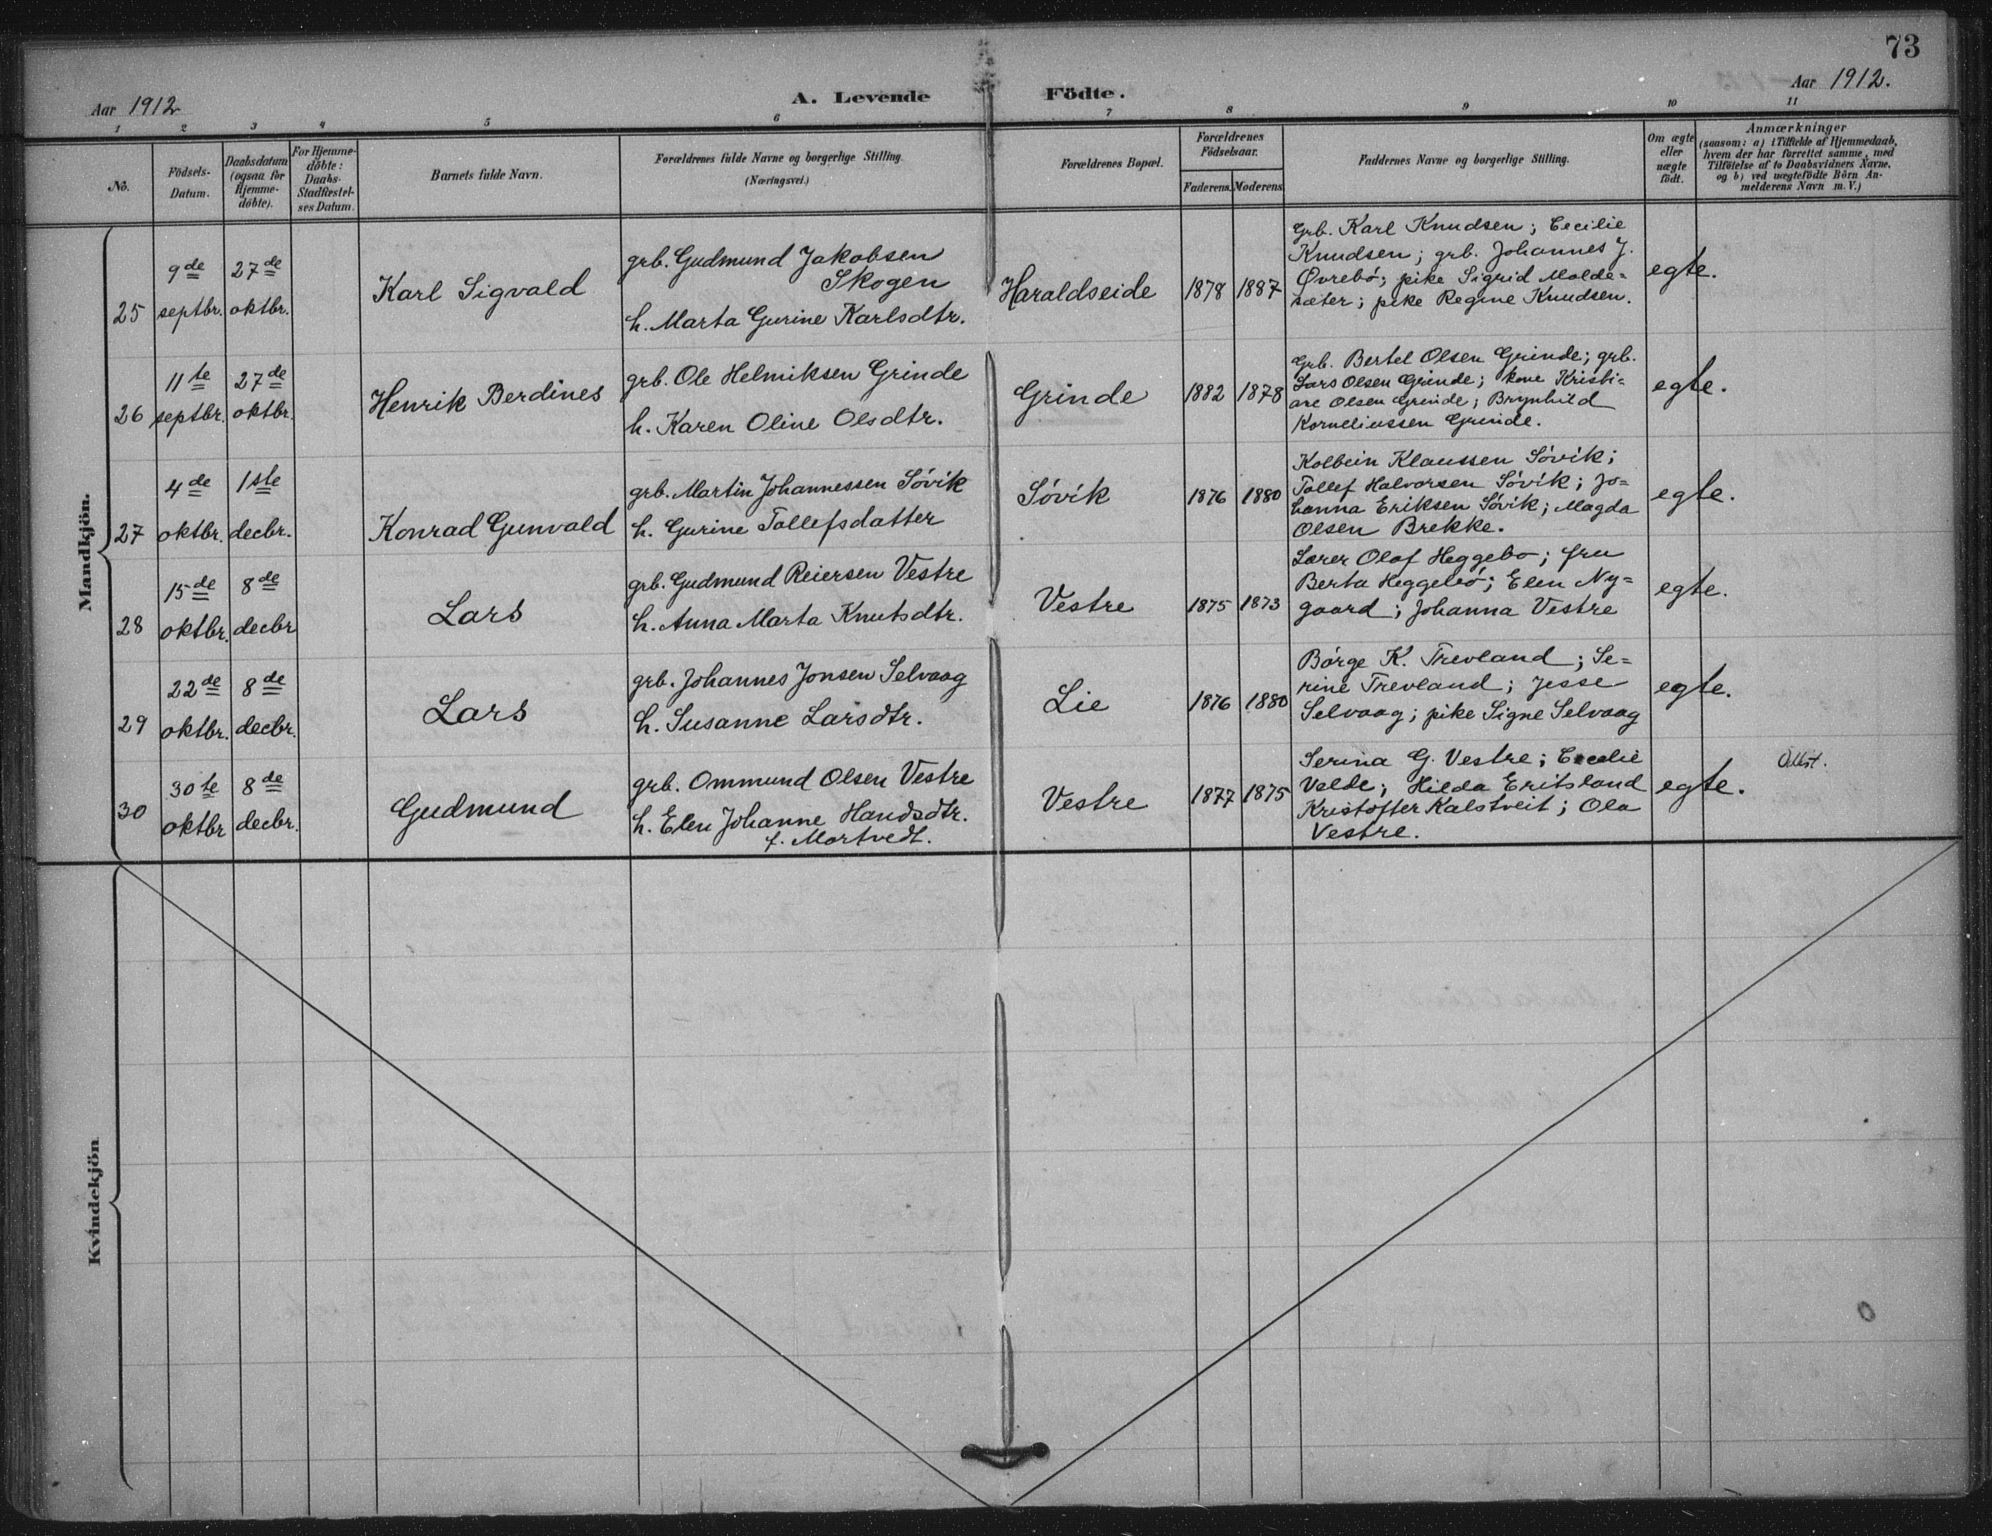 73
Aar 1912
A. Levende Födte.
Aar 1912.
1 2 3 4 5 6 7 8 9 10 11
No.
Födsels-
Datum.
Daabsdatum
(ogsaa for
Hjemme-
döbte).
For Hjemme-
döbte:
Daabs-
Stadfæstel-
ses Datum.
Barnets fulde Navn.
Forældrenes fulde Navne og borgerlige Stilling.
(Næringsvei.)
Forældrenes Bopæl.
Forældrenes
Födselsaar.
Faderens. Moderens.
Faddernes Navne og borgerlige Stilling.
Om ægte
eller
uægte
født.
Anmærkninger
(saasom: a) i Tilfælde af Hjemmedaab,
hvem der har forrettet samme, med
Tilföielse af to Daabsvidners Navne,
og b) ved uægtefödte Börn An-
melderens Navn m. V.)
Mandkjön.
25
9de
septbr.
27de
oktbr.
Karl Sigvald
grb. Gudmund Jakobsen
Skogen
h. Marta Gurine Karlsdtr.
Haraldseide
1878 1887
Grb. Karl Knudsen; Cecilie
Knudsen; grb. Johannes J.
Øvrebø; pike Sigrid Molde=
sæter; pike Regine Knudsen.
egte.
26
11te
septbr.
27de
oktbr.
Henrik Berdines
grb. Ole Helmiksen Grinde
h. Karen Oline Olsdtr.
Grinde
1882 1878
Grb. Bertel Olsen Grinde; grb.
Lars Olsen Grinde; kone Kristi=
ane Olsen Grinde; Brynhild
Korneliussen Grinde.
egte.
27
4de
oktbr.
1ste
decbr.
Konrad Gunvald
grb. Martin Johannessen Søvik
h. Gurine Tollefsdatter
Søvik
1876 1880
Kolbein Klaussen Søvik;
Tollef Halvorsen Søvik; Jo=
hanna Eriksen Søvik; Magda
Olsen Brekke.
egte.
28
15de
oktbr.
8de
decbr
Lars
grb. Gudmund Reiersen Vestre
h. Anna Marta Knutsdtr.
Vestre
1875 1873
Lærer Olaf Heggebø; fru
Berta Heggebø; Elen Ny=
gaard; Johanna Vestre
egte.
29
22de
oktbr.
8de
decbr.
Lars
grb. Johannes Jonsen Selvaag
h. Susanne Larsdtr.
Lie
1876 1880
Børge K. Trevland; Se=
rine Trevland; Jesse
Selvaag; pike Signe Selvaag
egte.
30
30te
oktbr
8de
decbr.
Gudmund
grb. Ommund Olsen Vestre
h. Elen Johanne Handsdtr.
f. Mortvedt.
Vestre
1877 1875
Serina G. Vestre; Cecelie
Valde; Hilda Eritsland
Kristoffer Kalstveit; Ola
Vestre.
egte.
Kvindekjön.